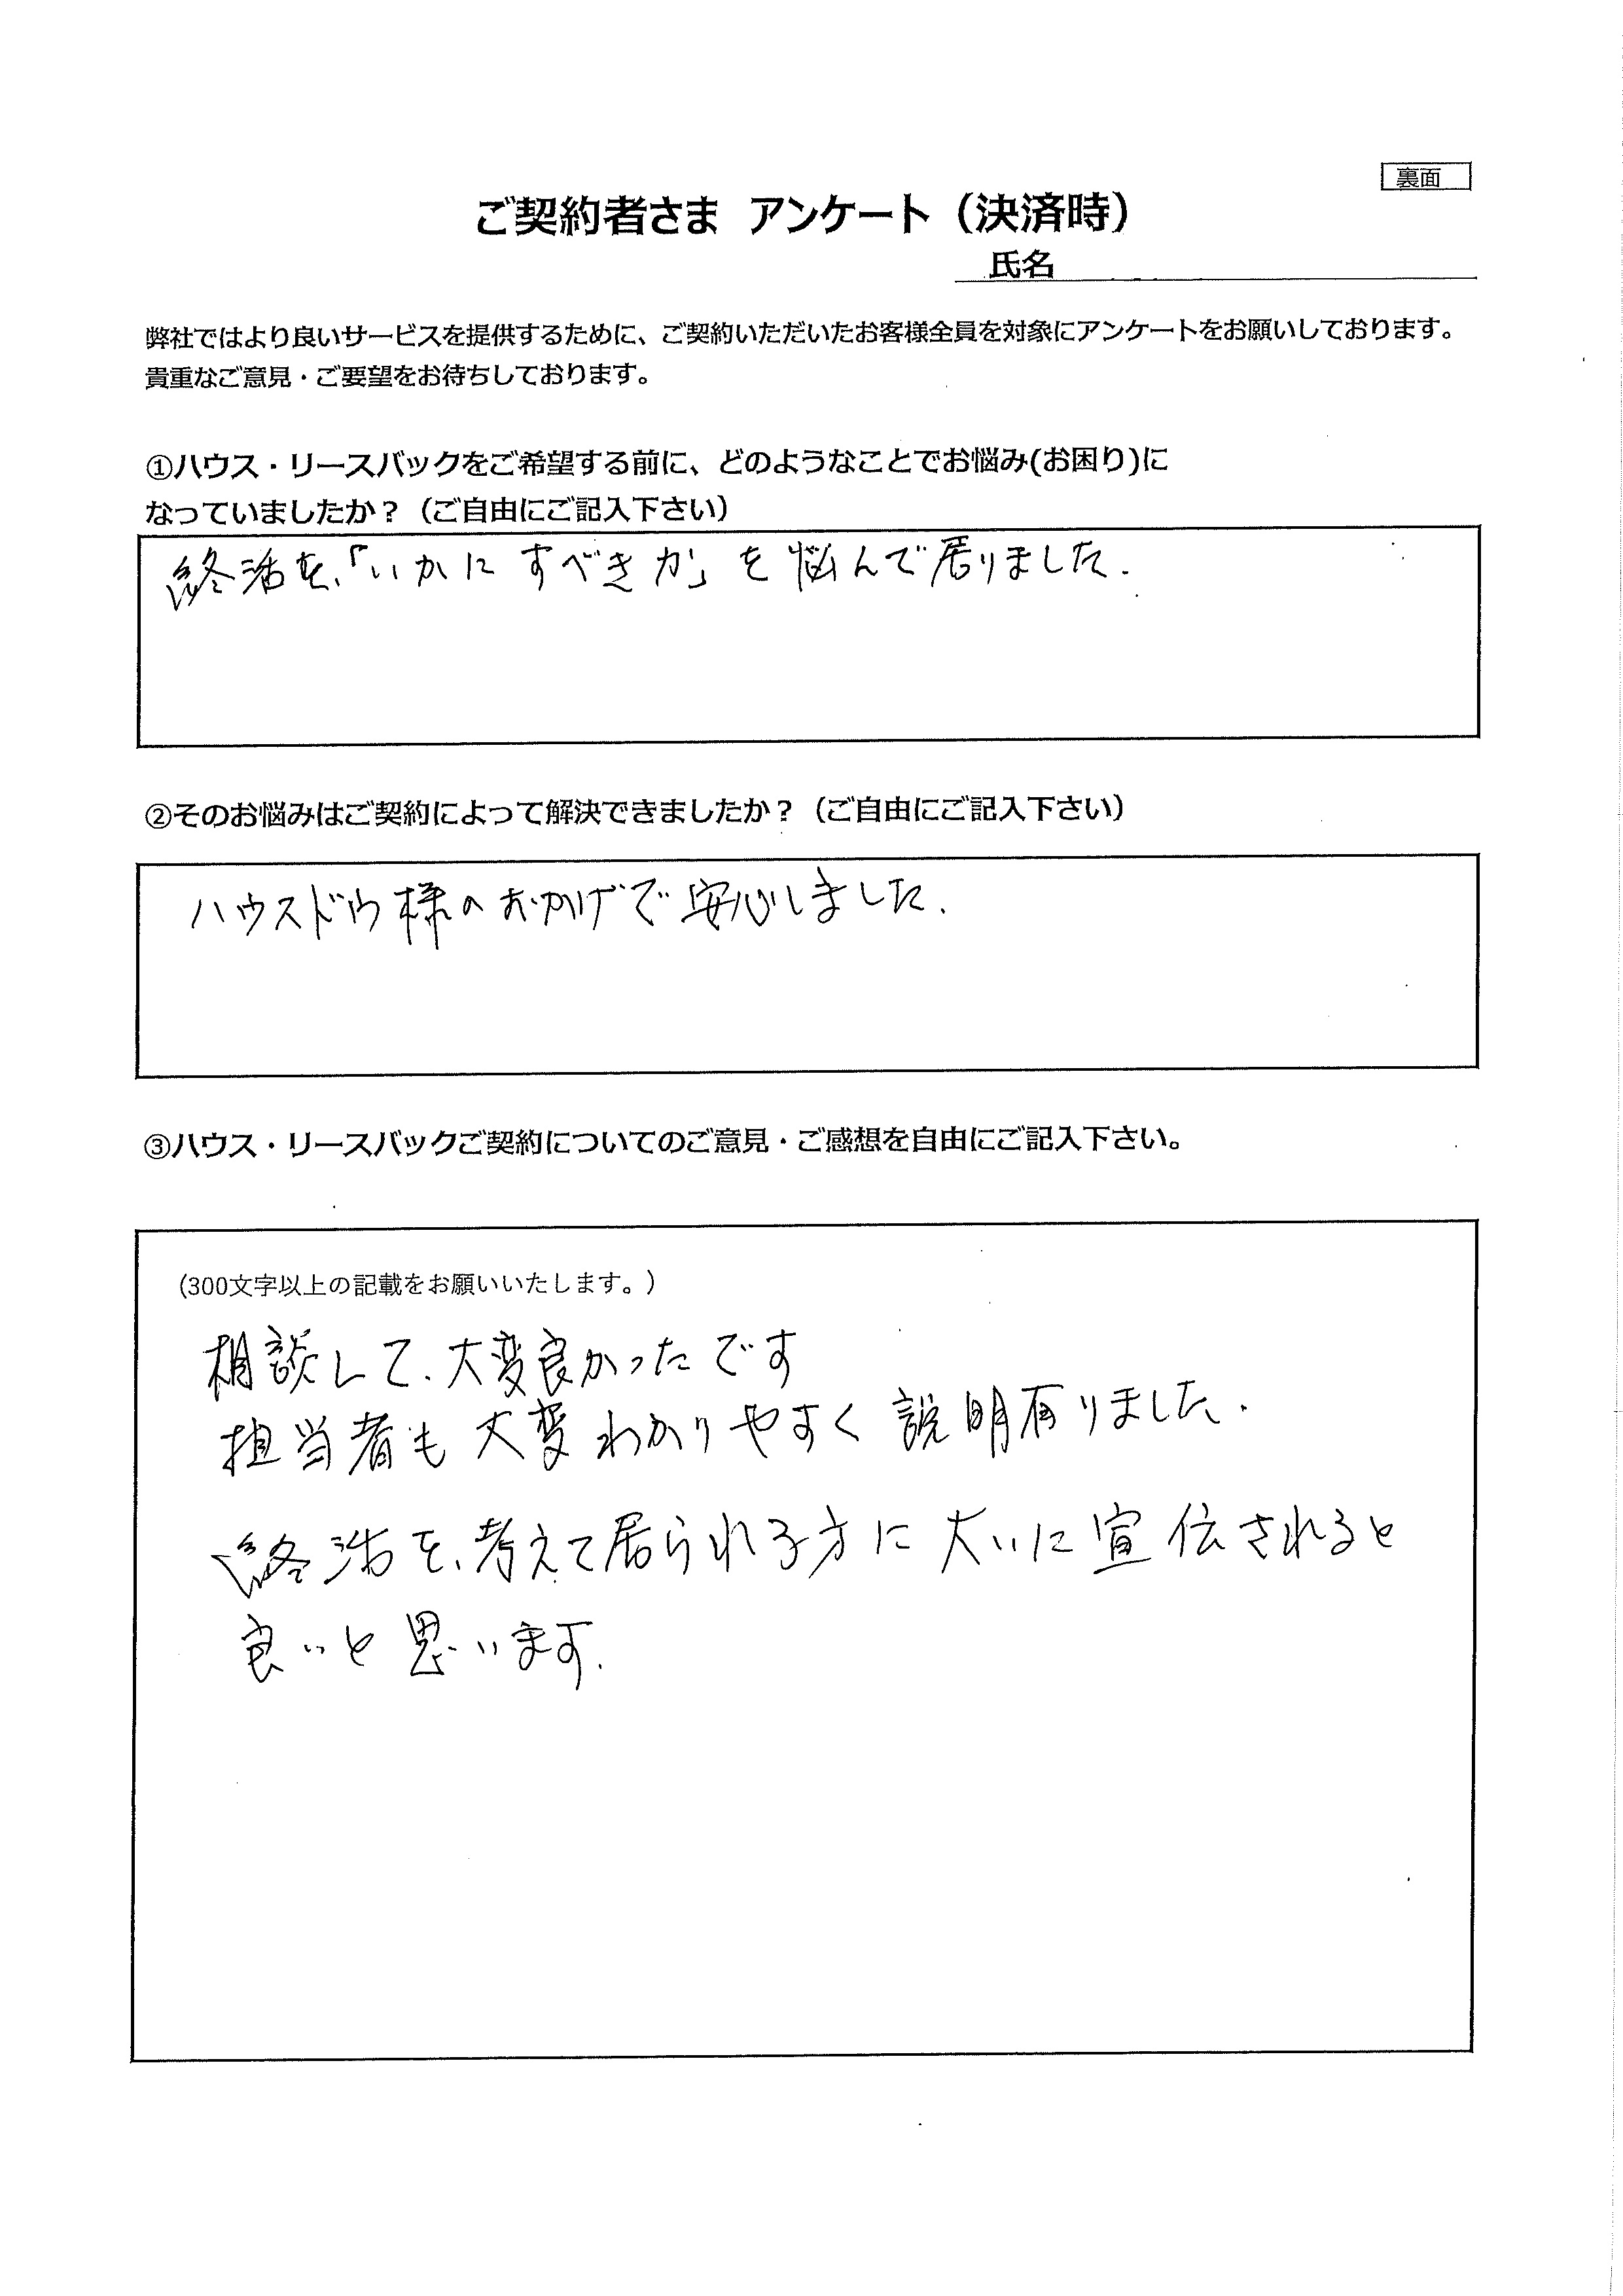 裏面
ご契約者さま アンケート（決済時）
氏名
弊社ではより良いサービスを提供するために、ご契約いただいたお客様全員を対象にアンケートをお願いしております。
貴重なご意見・ご要望をお待ちしております。
①ハウス・リースバックをご希望する前に、どのようなことでお悩み(お困り)に
なっていましたか？（ご自由にご記入下さい）
終活を、「いかにすべきか」を悩んで居りました.
②そのお悩みはご契約によって解決できましたか？（ご自由にご記入下さい）
ハウスドウ様のおかげで安心しました.
③ハウス・リースバックご契約についてのご意見・ご感想を自由にご記入下さい。
（300文字以上の記載をお願いいたします。）
相談して、大変良かったです
担当者も大変わかりやすく説明有りました.
終活を、考えて居られる方に大いに宣伝されると
良いと思います.